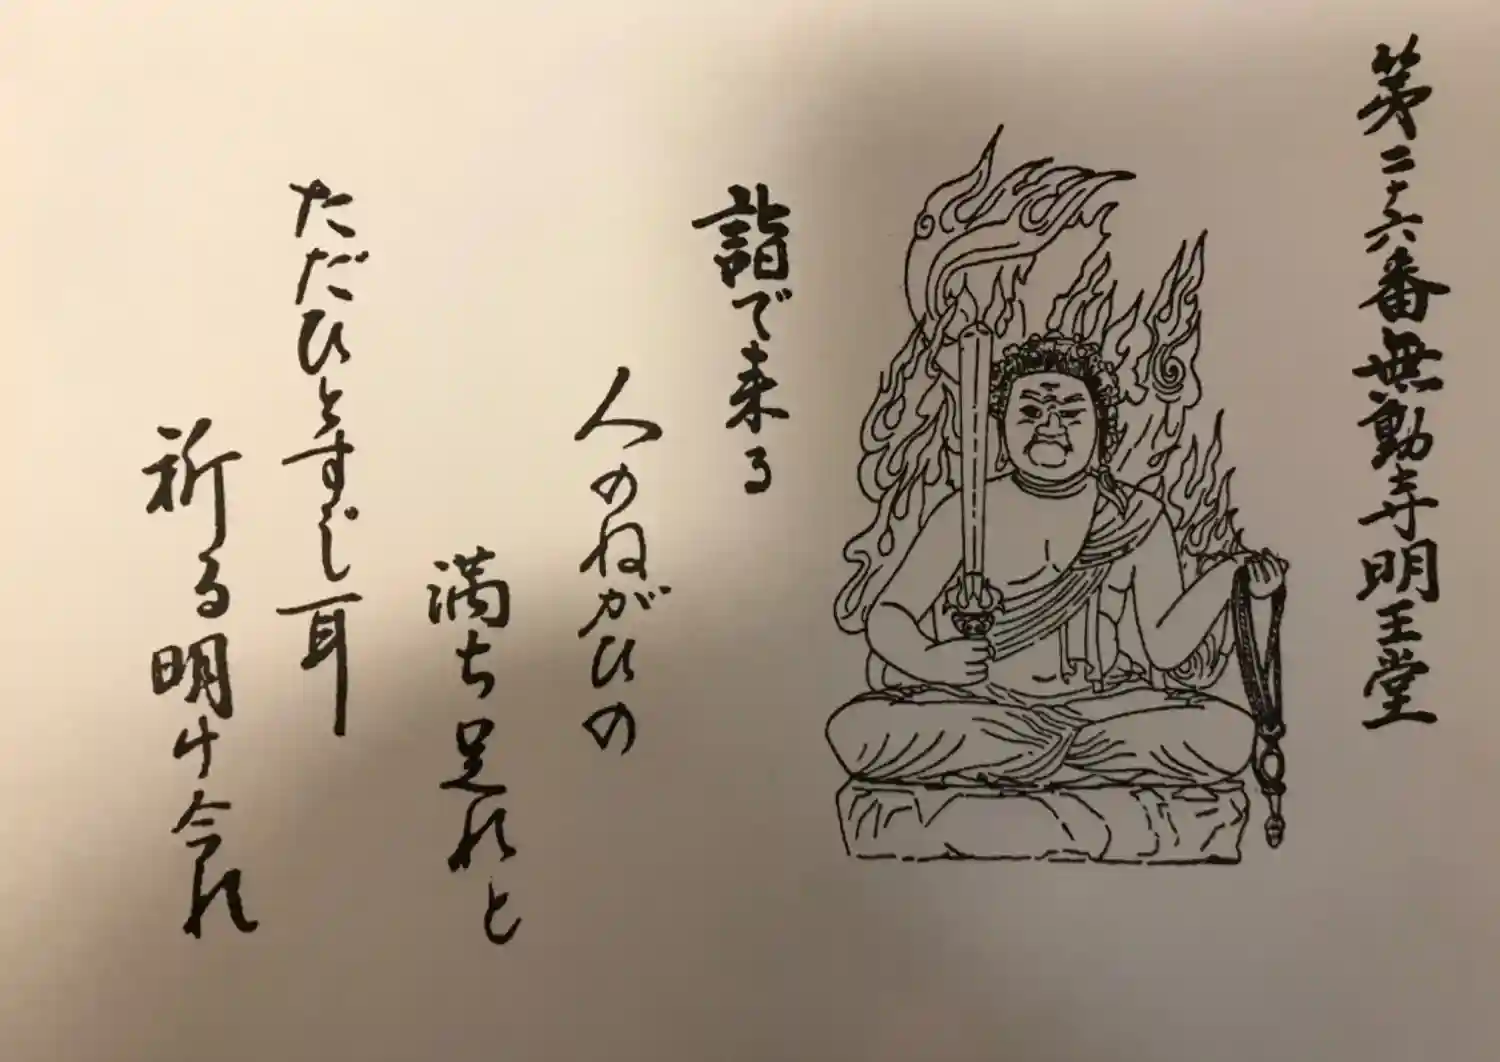 第二十六番無動寺明王堂
詣で来る
人のねがひの
満ち足れと
ただひとすじ耳
祈る明け今れ